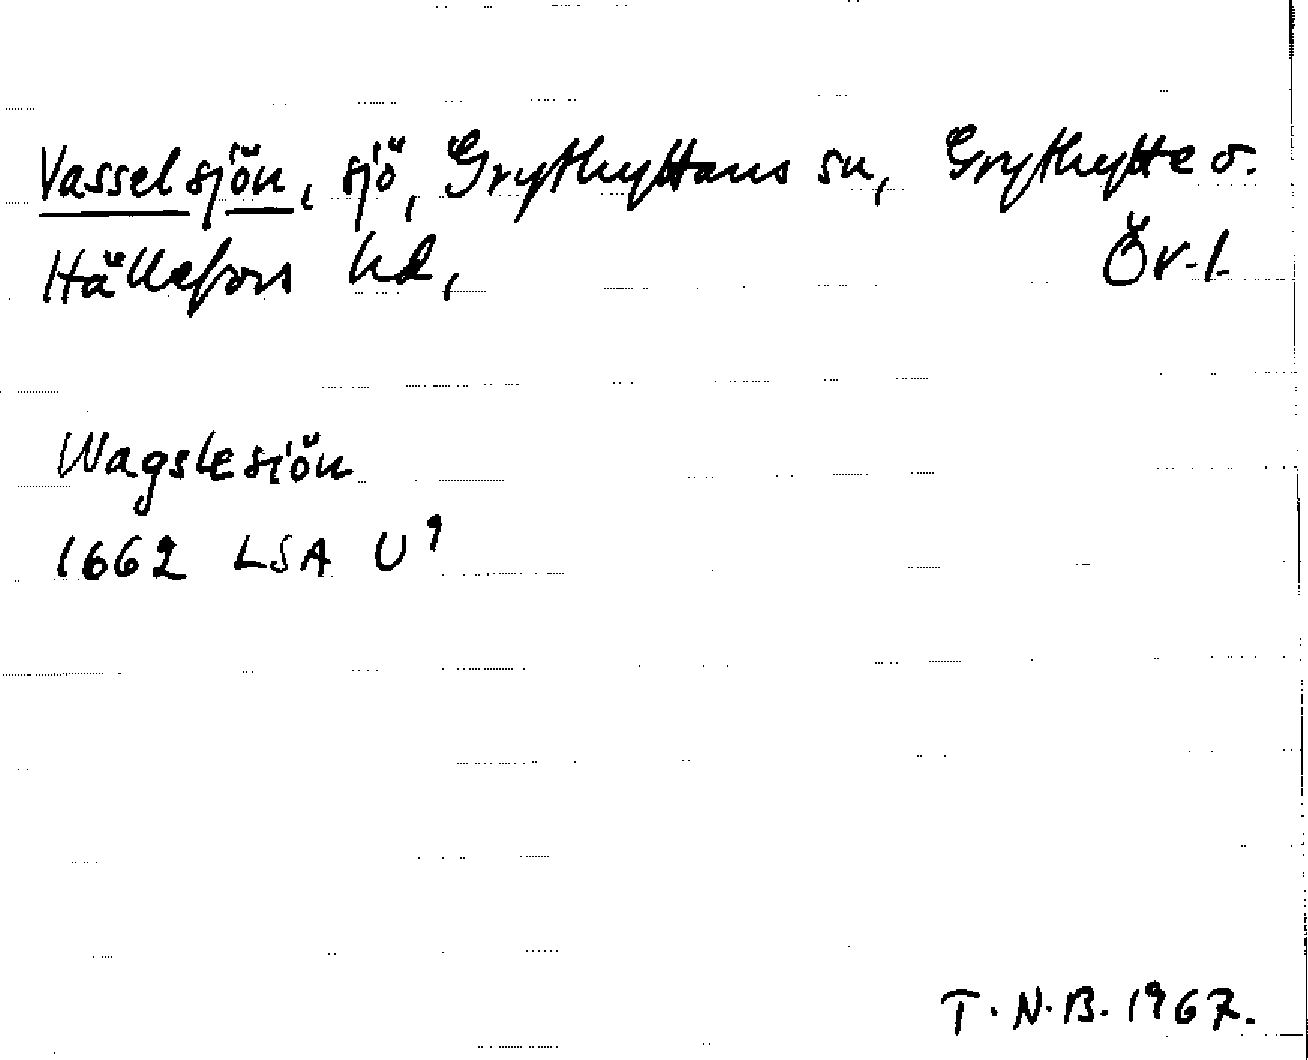 Vasselsjön, sjö, Grythyttans sn, Grythytte o.
Hällefors hd, Ör. l.
Wagslesiön
1662 LSA U⁹
T. N. B. 1967.